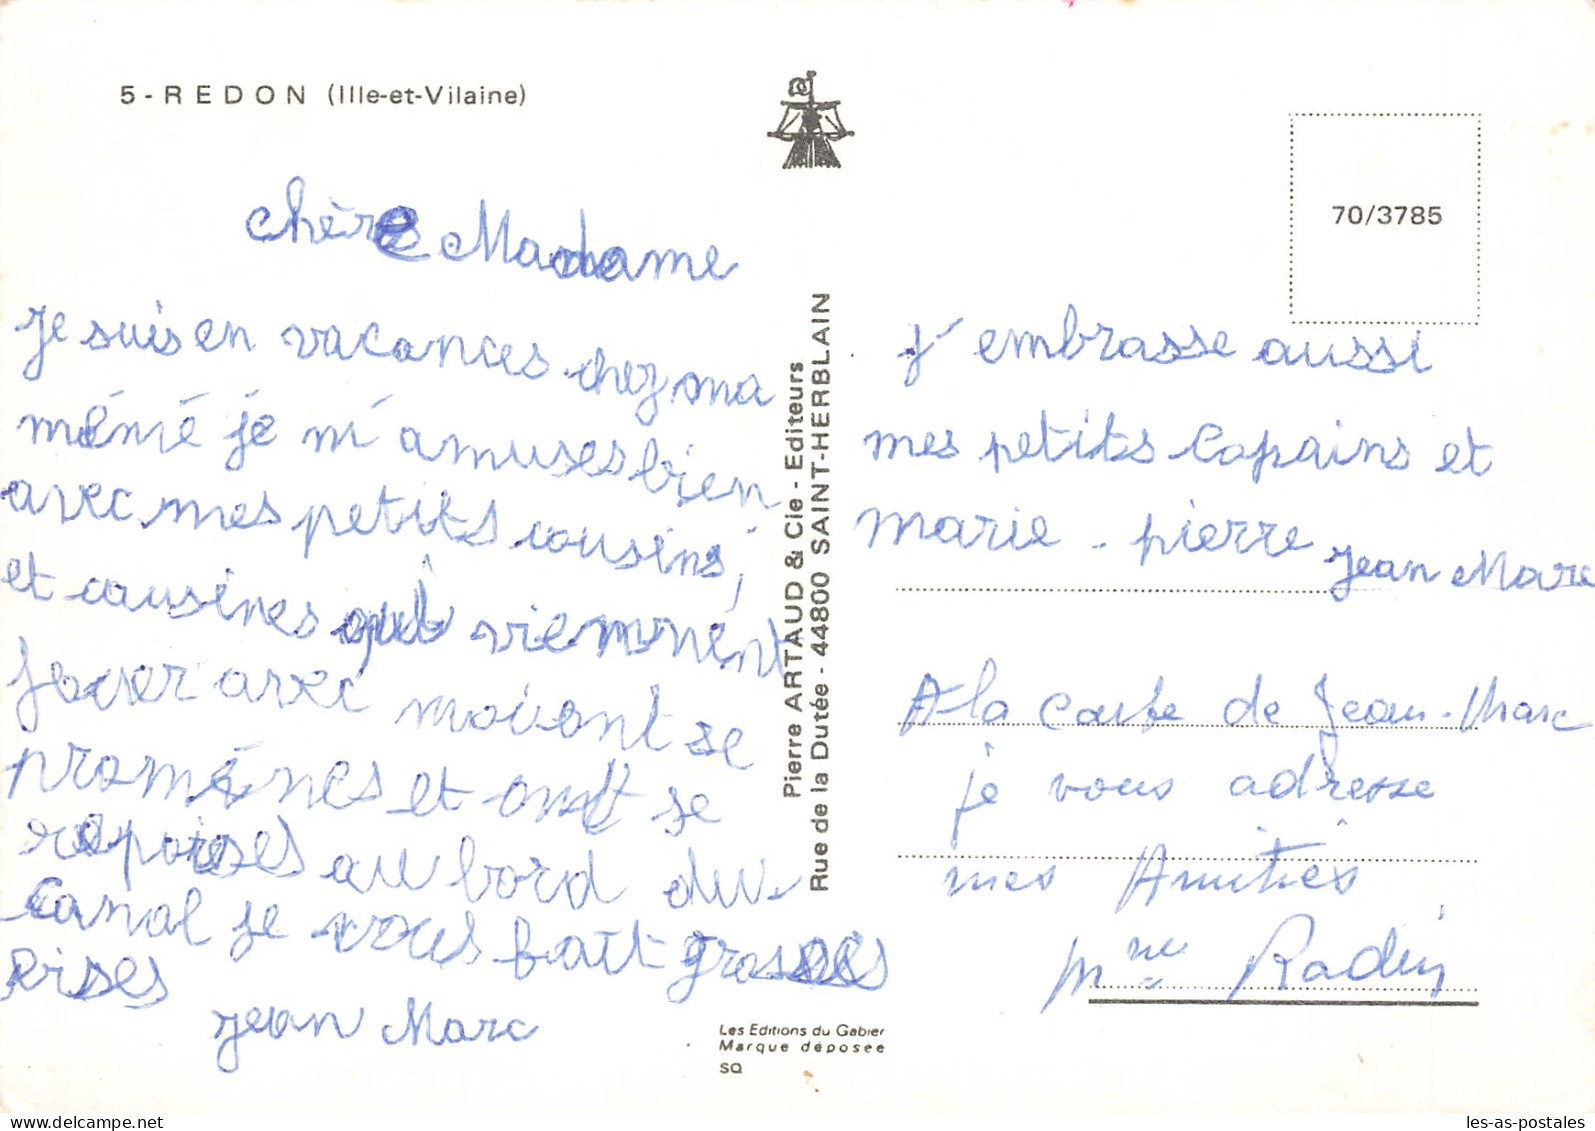 5 - REDON (Ille-et-Vilaine)
chère Madame
je suis en vacances chez ma
mémé je m'amuses bien
avec mes petits cousins,
et cousines qui viennent
jouer avec moi ont se
promènes et ont se
repoises au bord du
Canal je vous fait grosses
Bises
jean Marc
Pierre ARTAUD & Cie - Editeurs
Rue de la Dutée - 44800 SAINT-HERBLAIN
Les Editions du Gabier
Marque déposée
SQ
70/3785
j'embrasse aussi
mes petits Copains et
marie - pierre jean Marc
A la carte de Jean-Marc
je vous adresse
mes Amitiés
Mme Radin
les-as-postales